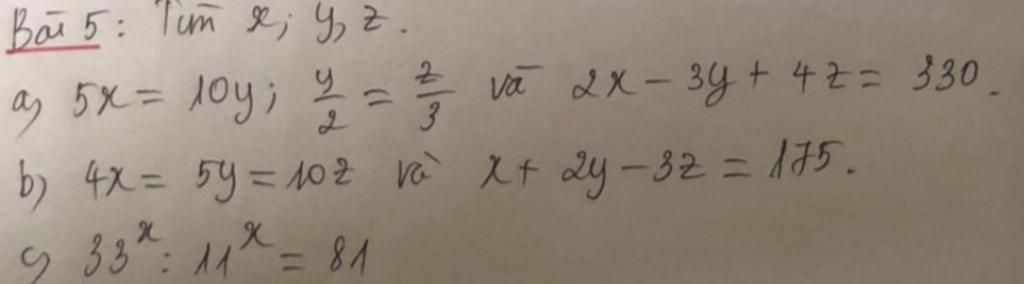 Bài 5: Tìm x; y, z.
a) 5x = 10y; y/2 = z/3 và 2x - 3y + 4z = 330.
b) 4x = 5y = 10z và x + 2y - 3z = 175.
c) 33^x : 11^x = 81